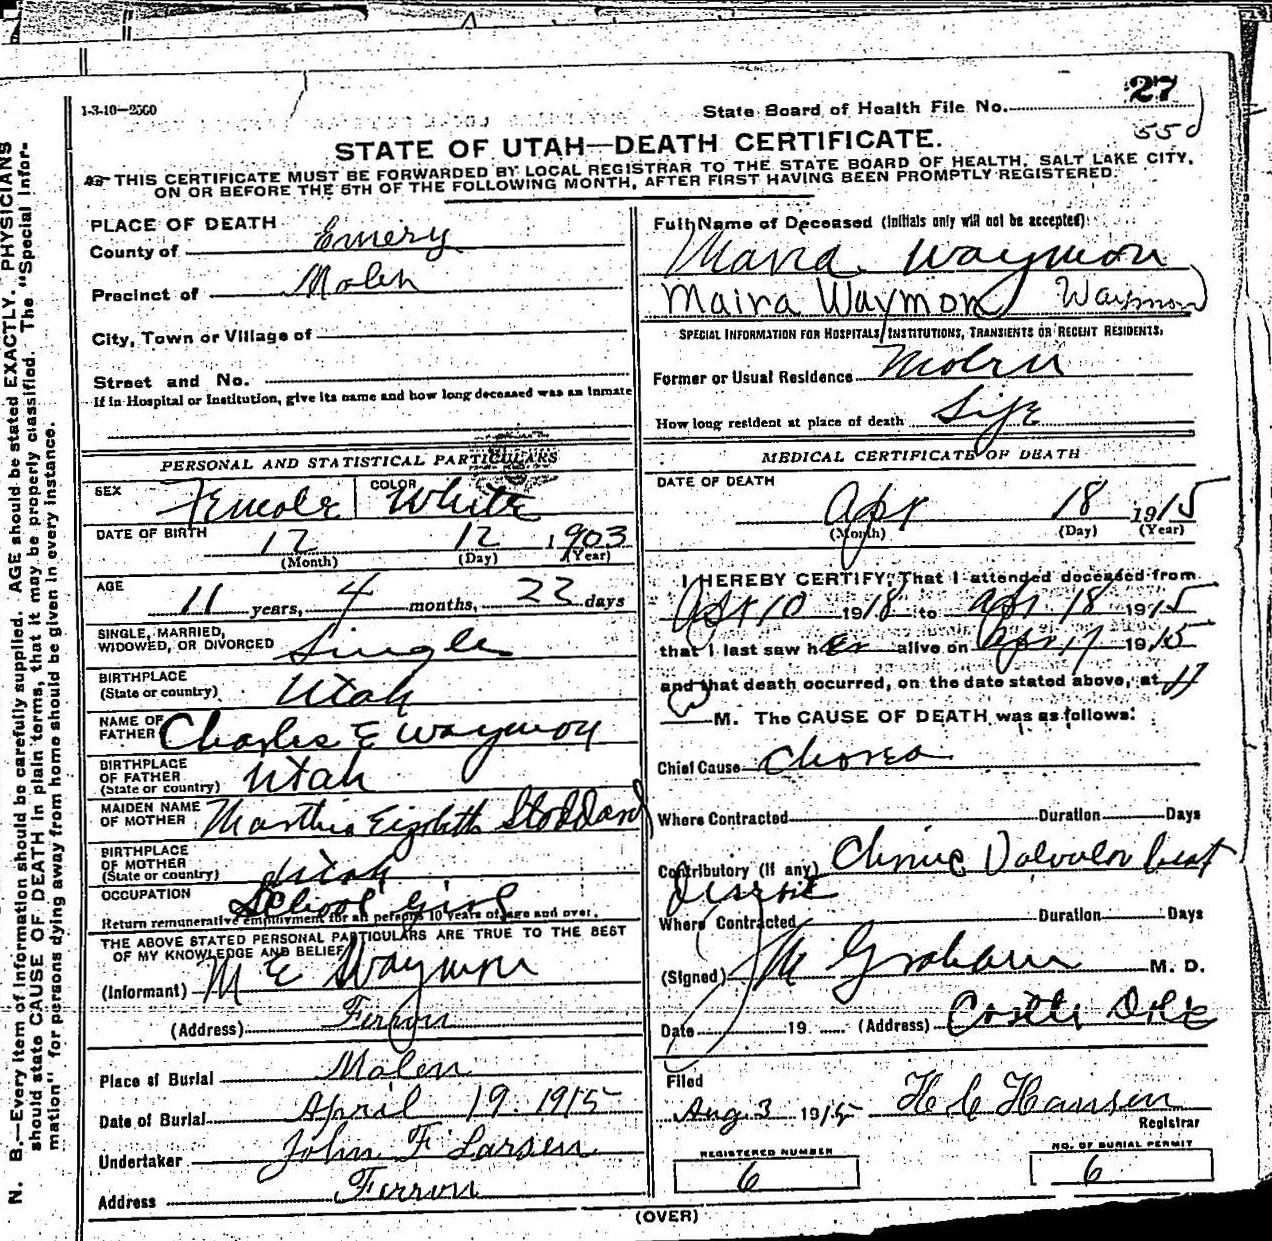 1-3-10—2560
State Board of Health File No. 27
550
STATE OF UTAH—DEATH CERTIFICATE.
THIS CERTIFICATE MUST BE FORWARDED BY LOCAL REGISTRAR TO THE STATE BOARD OF HEALTH, SALT LAKE CITY,
ON OR BEFORE THE 5TH OF THE FOLLOWING MONTH, AFTER FIRST HAVING BEEN PROMPTLY REGISTERED.
PLACE OF DEATH
County of Emery
Precinct of Molen
City, Town or Village of
Street and No.
If in Hospital or Institution, give its name and how long deceased was an inmate
PERSONAL AND STATISTICAL PARTICULARS
SEX Female COLOR White
DATE OF BIRTH 12 12 1903
(Month) (Day) (Year)
AGE 11 years, 4 months, 22 days
SINGLE, MARRIED,
WIDOWED, OR DIVORCED Single
BIRTHPLACE
(State or country) Utah
NAME OF
FATHER Charles E Waymon
BIRTHPLACE
OF FATHER
(State or country) Utah
MAIDEN NAME
OF MOTHER Stoddard
BIRTHPLACE
OF MOTHER
(State or country) Utah
OCCUPATION School Girl
Return remunerative employment for all persons 10 years of age and over.
THE ABOVE STATED PERSONAL PARTICULARS ARE TRUE TO THE BEST
OF MY KNOWLEDGE AND BELIEF
(Informant) M E Waymon
(Address) Ferron
Place of Burial Molen
Date of Burial April 19. 1915
Undertaker John F Larsen
Address Ferron
Full Name of Deceased (Initials only will not be accepted)
Waymon
Maira Waymon Waymon
SPECIAL INFORMATION FOR HOSPITALS, INSTITUTIONS, TRANSIENTS OR RECENT RESIDENTS.
Former or Usual Residence Molen
How long resident at place of death Life
MEDICAL CERTIFICATE OF DEATH
DATE OF DEATH
Apr 18 1915
(Month) (Day) (Year)
I HEREBY CERTIFY, That I attended deceased from
Apr 10 1918 to Apr 18 1915
that I last saw her alive on Apr 17 1915
and that death occurred, on the date stated above, at 11
M. The CAUSE OF DEATH was as follows:
Chief Cause Chorea
Where Contracted Duration Days
Contributory (if any) Valvular heat
Disease
Where Contracted Duration Days
(Signed) Graham M. D.
Date 19 (Address) Castle Dale
Filed
Aug 3 1915 H C Hansen
Registrar
REGISTERED NUMBER
6
NO. OF BURIAL PERMIT
6
(OVER)
N. B.—Every item of information should be carefully supplied. AGE should be stated EXACTLY. PHYSICIANS
should state CAUSE OF DEATH in plain terms, that it may be properly classified. The "Special Infor-
mation" for persons dying away from home should be given in every instance.